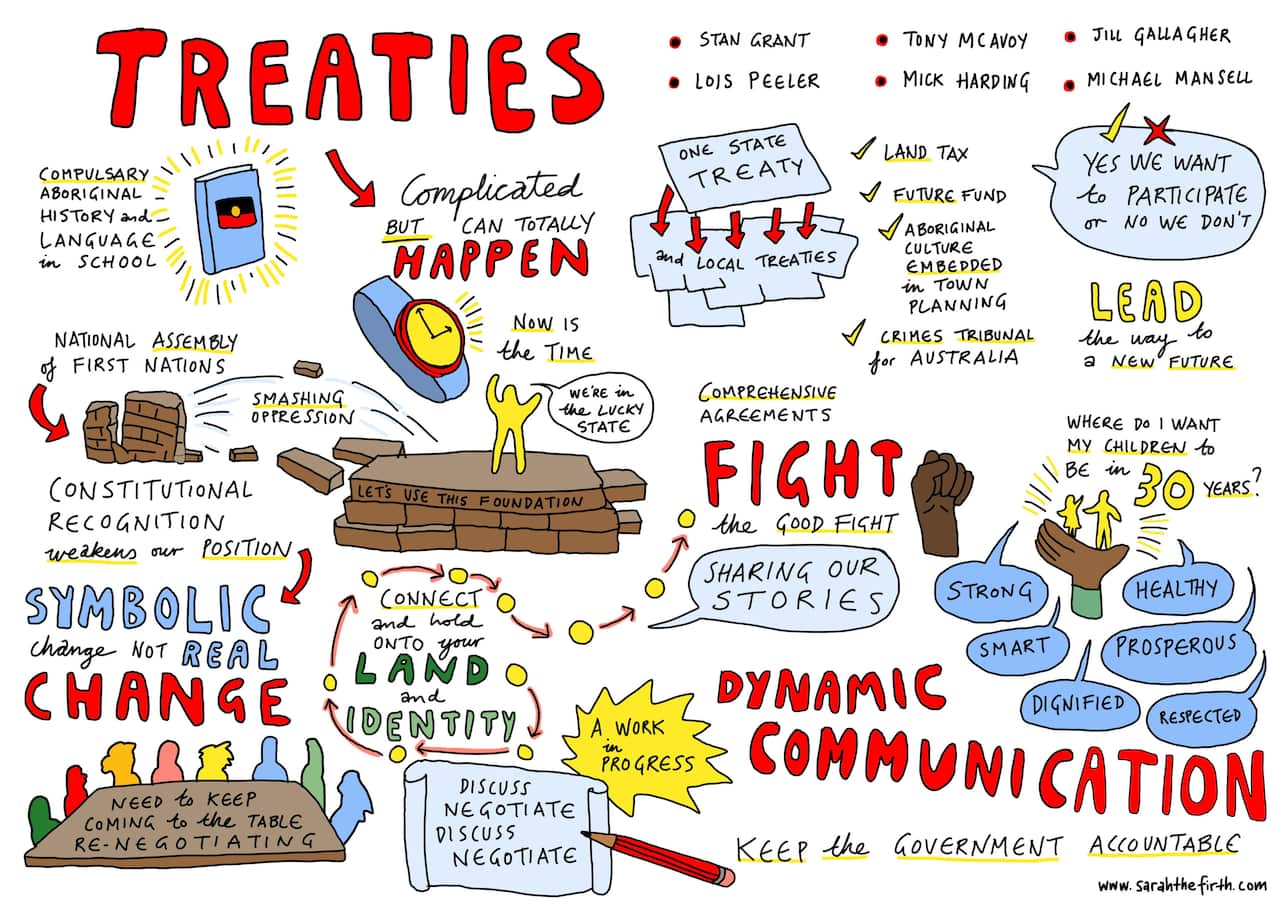 TREATIES
STAN GRANT
LOIS PEELER
TONY MCAVOY
MICK HARDING
JILL GALLAGHER
MICHAEL MANSELL
COMPULSARY
ABORIGINAL
HISTORY and
LANGUAGE
in SCHOOL
Complicated
BUT CAN TOTALLY
HAPPEN
NOW IS
the TIME
ONE STATE
TREATY
and LOCAL TREATIES
LAND TAX
FUTURE FUND
ABORIGINAL
CULTURE
EMBEDDED
in TOWN
PLANNING
CRIMES TRIBUNAL
for AUSTRALIA
YES WE WANT
to PARTICIPATE
or NO WE DON'T
LEAD
the way to
a NEW FUTURE
NATIONAL ASSEMBLY
of FIRST NATIONS
SMASHING
OPPRESSION
WE'RE in
the LUCKY
STATE
LET'S USE THIS FOUNDATION
CONSTITUTIONAL
RECOGNITION
weakens our POSITION
SYMBOLIC
change NOT REAL
CHANGE
NEED to KEEP
COMING to the TABLE
RE-NEGOTIATING
CONNECT
and hold
ONTO your
LAND
and
IDENTITY
DISCUSS
NEGOTIATE
DISCUSS
NEGOTIATE
A WORK
in
PROGRESS
COMPREHENSIVE
AGREEMENTS
FIGHT
the GOOD FIGHT
SHARING OUR
STORIES
WHERE DO I WANT
MY CHILDREN to
BE in 30 YEARS?
STRONG
HEALTHY
SMART
PROSPEROUS
DIGNIFIED
RESPECTED
DYNAMIC
COMMUNICATION
KEEP the GOVERNMENT ACCOUNTABLE
www.sarahthefirth.com